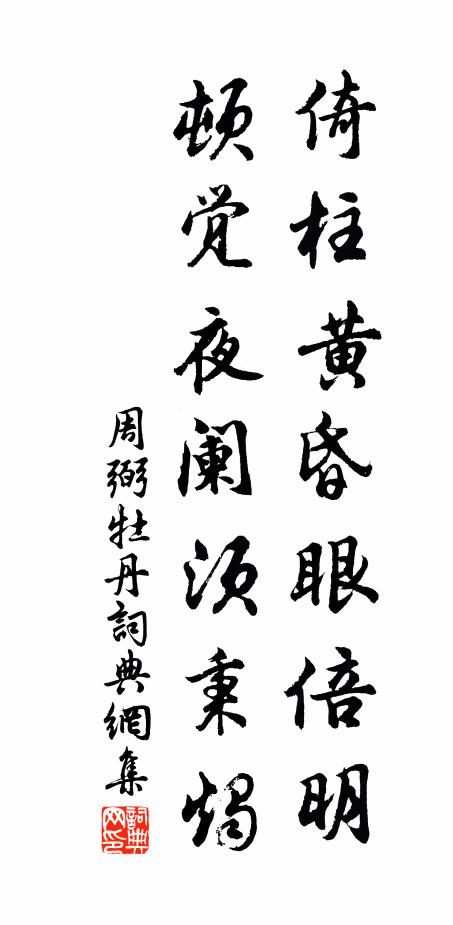 倚柱黄昏眼倍明
顿觉夜阑须秉烛
周弼牡丹詞典網集
詞典网印